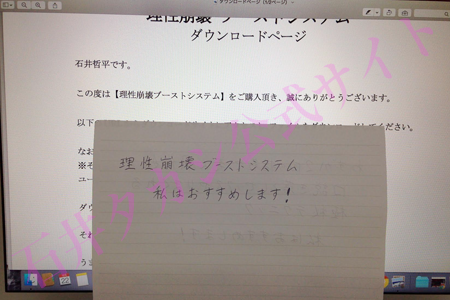 ダウンロードページ
理性崩壊ブーストシステム
ダウンロードページ
石井哲平です。
この度は【理性崩壊ブーストシステム】をご購入頂き、誠にありがとうございます。
以下
ださい。
なお
※そ
ユー
理性崩壊ブーストシステム
私はおすすめします!
ダウ
それ
うま
石井タカシ公式サイト